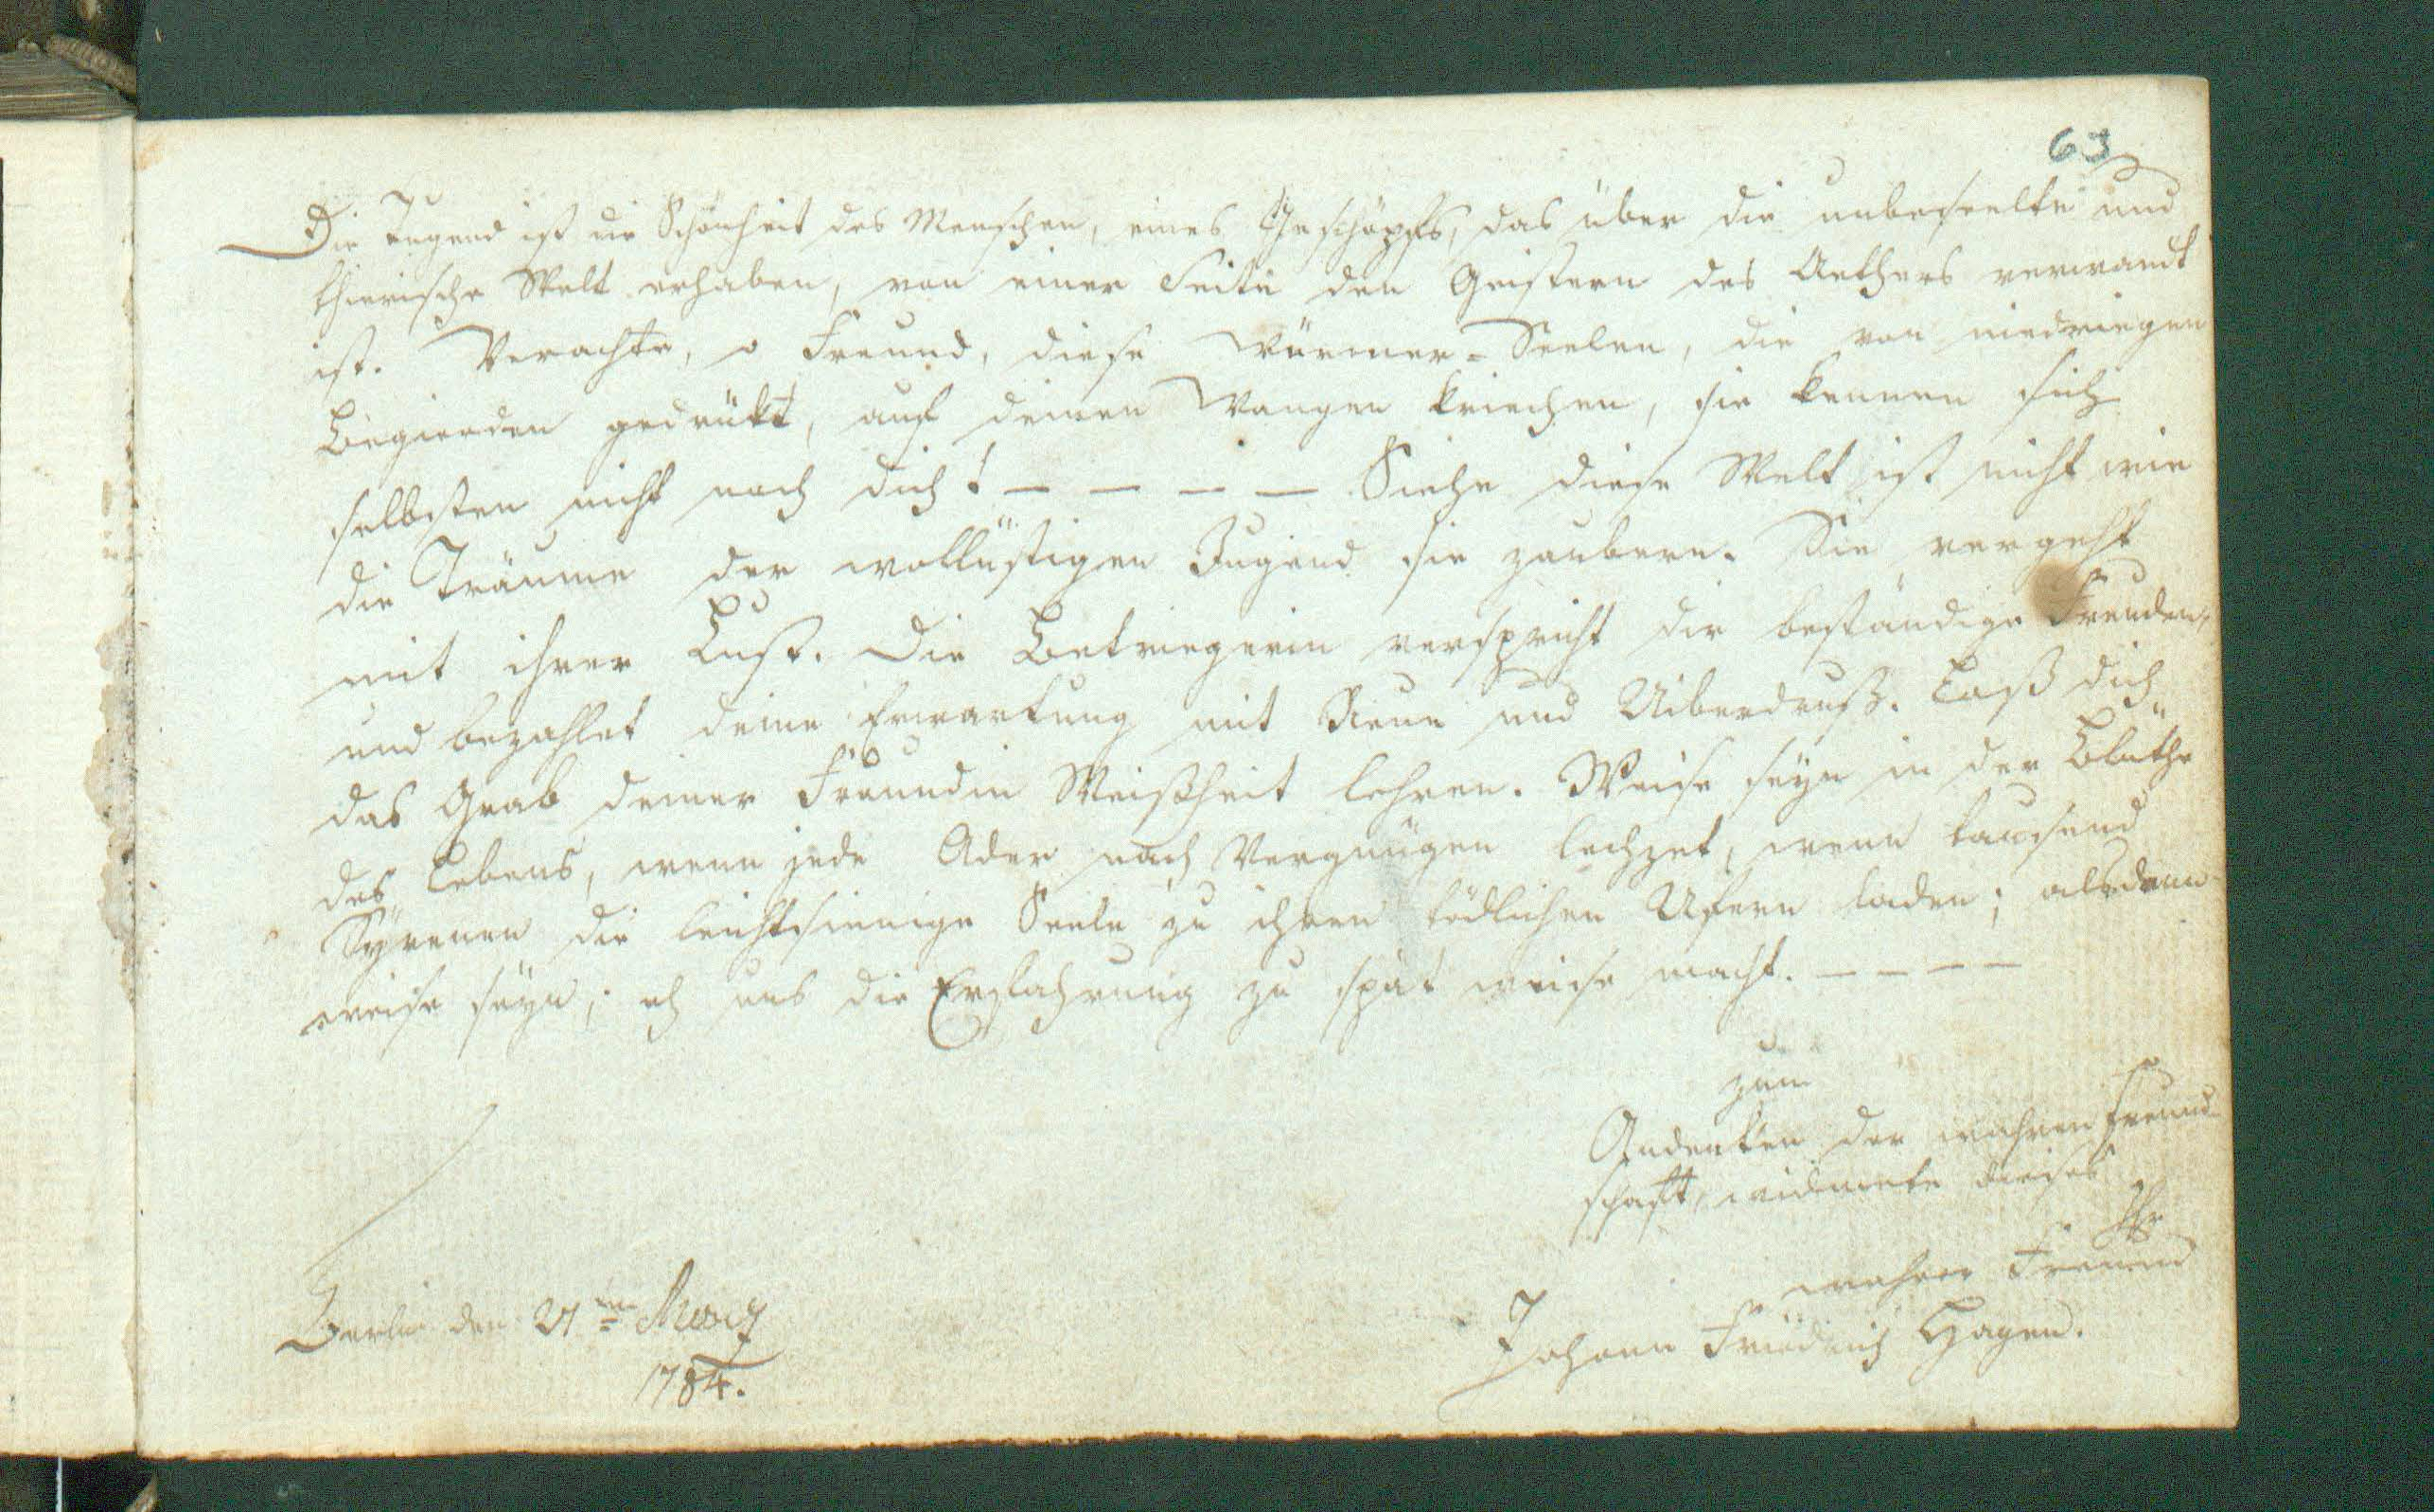 63
Die Tugend ist die Schönheit des Menschen, eines Geschöpfs, das über die unbeseelte und
thierische Welt erhaben, von einer Seite den Geistern des Aethers verwandt
ist. Verachte, o Freund, diese Würmer-Seelen, die von niedriegen
Begierden gedrükt, auf deinen Wangen kriechen, sie kennen sich
selbsten nicht noch dich! — — — — Siehe diese Welt ist nicht wie
die Träume der wollüstigen Jugend sie zaubern. Sie vergeht
mit ihrer Lust. Die Betriegerin verspricht dir beständige Freuden,
und bezahlet deine Erwartung mit Reue und Uiberdruß. Laß dich
das Grab deiner Freundin Weißheit lehren. Weise seyn in der Blüthe
des Lebens, wenn jede Ader nach Vergnügen lechzet, wenn tausend
Syrenen die leichtsinnige Seele zu ihren tödlichen Ufern laden; alsdann
weise seyn, eh uns die Erfahrung zu spät weise macht. — — — —
zum
Andenken der wahren Freund-
schaft, widmete dieses
Ihr
wahrer Freund
Johann Friedrich Hagen.
Berlin den 21ten Merz
1784.